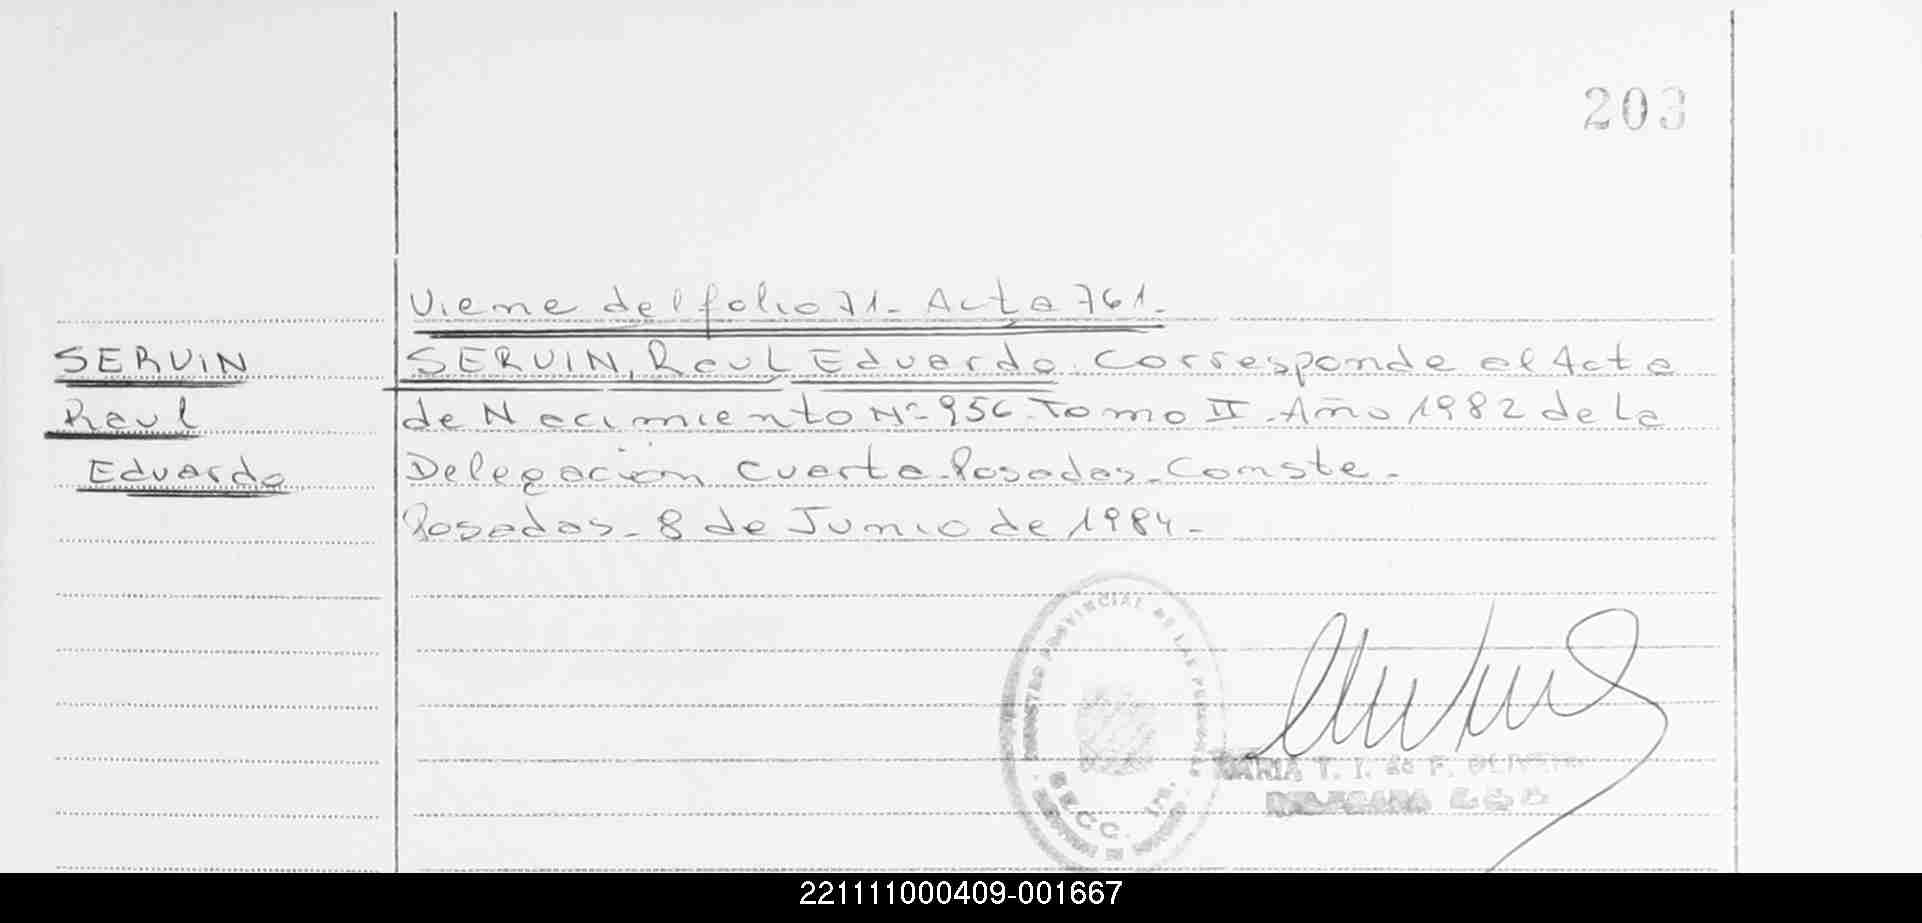 203
Viene del folio 71- Acta 761-
SERVIN
SERVIN, Raul Eduardo. Corresponde al Acta
Raul
de Nacimiento Nº 956-Tomo II-Año 1982 de la
Eduardo
Delegación Cuarta-Posadas-Conste-
Posadas- 8 de Junio de 1984-
REGISTRO PROVINCIAL DE LAS PERSONAS
SECC. 1ra.
MARIA T. I. de F.
221111000409-001667